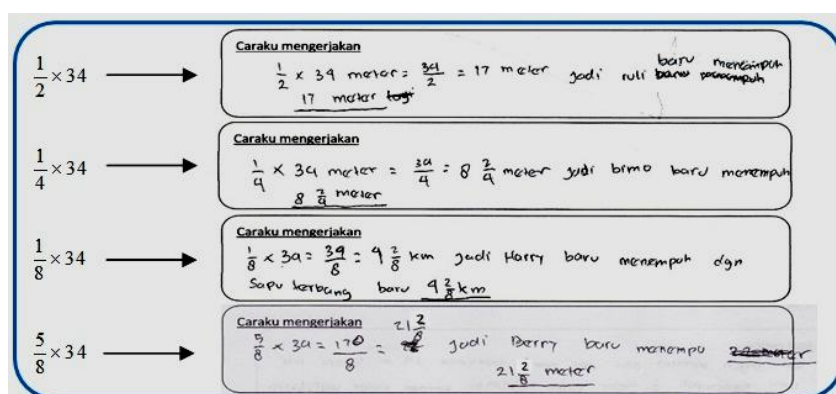 1/2 × 34
Caraku mengerjakan
1/2 × 34 meter = 34/2 = 17 meter jadi ruli baru menempuh
17 meter
1/4 × 34
Caraku mengerjakan
1/4 × 34 meter = 34/4 = 8 2/4 meter jadi bimo baru menempuh
8 2/4 meter
1/8 × 34
Caraku mengerjakan
1/8 × 34 = 34/8 = 4 2/8 km jadi Harry baru menempuh dgn
Sapu terbang baru 4 2/8 km
5/8 × 34
Caraku mengerjakan
5/8 × 34 = 170/8 = 21 2/8 jadi Berry baru menempu
21 2/8 meter